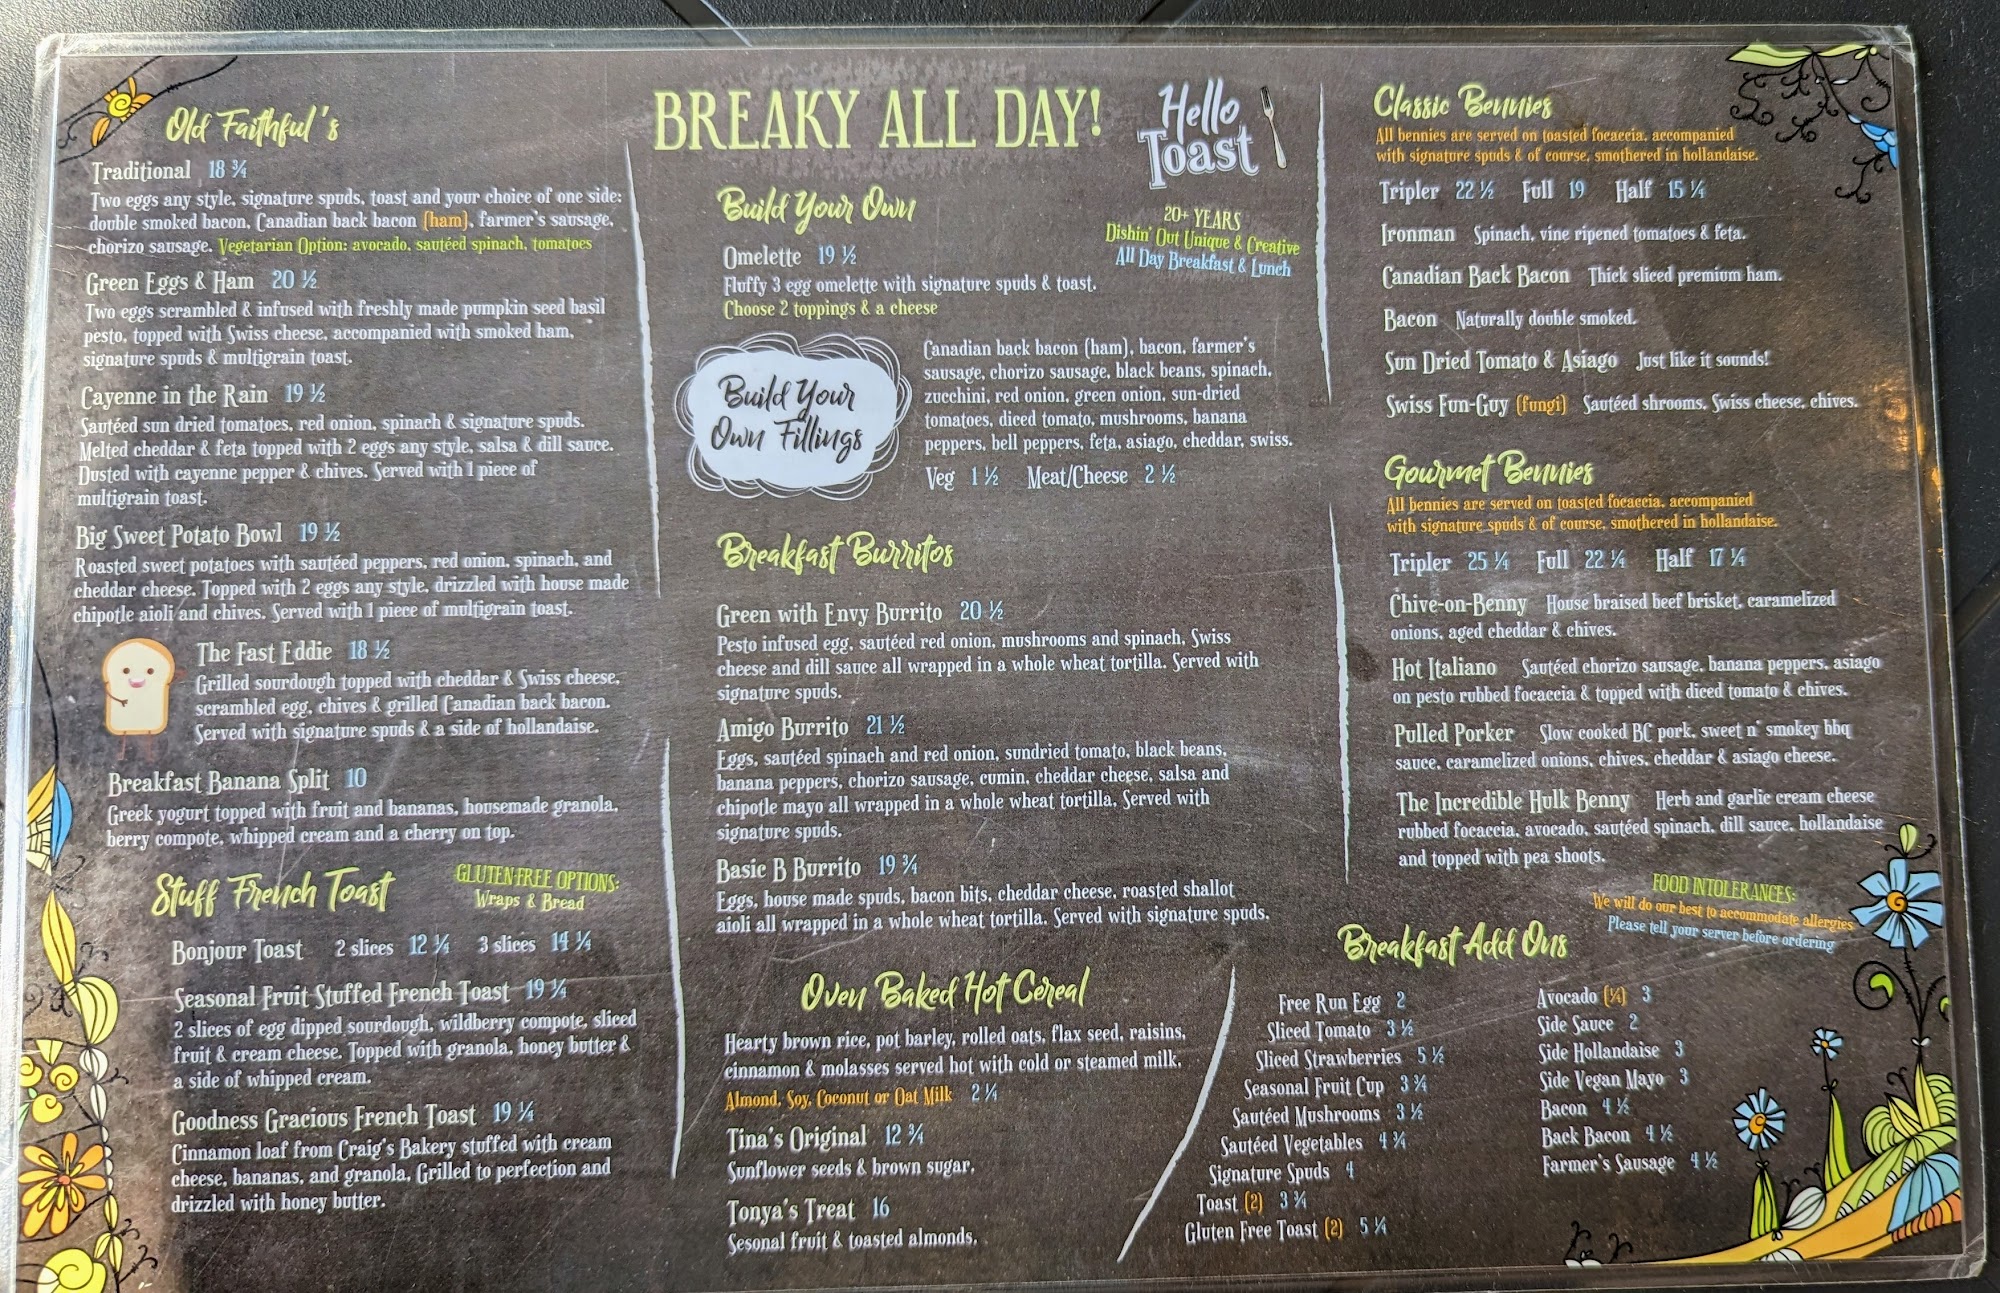 Old Faithful's
Traditional 18 ¾
Two eggs any style, signature spuds, toast and your choice of one side:
double smoked bacon, Canadian back bacon (ham), farmer's sausage,
chorizo sausage. Vegetarian Option: avocado, sautéed spinach, tomatoes
Green Eggs & Ham 20 ½
Two eggs scrambled & infused with freshly made pumpkin seed basil
pesto, topped with Swiss cheese, accompanied with smoked ham,
signature spuds & multigrain toast.
Cayenne in the Rain 19 ½
Sautéed sun dried tomatoes, red onion, spinach & signature spuds.
Melted cheddar & feta topped with 2 eggs any style, salsa & dill sauce.
Dusted with cayenne pepper & chives. Served with 1 piece of
multigrain toast.
Big Sweet Potato Bowl 19 ½
Roasted sweet potatoes with sautéed peppers, red onion, spinach, and
cheddar cheese. Topped with 2 eggs any style, drizzled with house made
chipotle aioli and chives. Served with 1 piece of multigrain toast.
The Fast Eddie 18 ½
Grilled sourdough topped with cheddar & Swiss cheese,
scrambled egg, chives & grilled Canadian back bacon.
Served with signature spuds & a side of hollandaise.
Breakfast Banana Split 10
Greek yogurt topped with fruit and bananas, housemade granola,
berry compote, whipped cream and a cherry on top.
Stuff French Toast
GLUTEN-FREE OPTIONS:
Wraps & Bread
Bonjour Toast 2 slices 12 ¼ 3 slices 14 ¼
Seasonal Fruit Stuffed French Toast 19 ¼
2 slices of egg dipped sourdough, wildberry compote, sliced
fruit & cream cheese. Topped with granola, honey butter &
a side of whipped cream.
Goodness Gracious French Toast 19 ¼
Cinnamon loaf from Craig's Bakery stuffed with cream
cheese, bananas, and granola. Grilled to perfection and
drizzled with honey butter.
BREAKY ALL DAY!
Hello
Toast
20+ YEARS
Dishin' Out Unique & Creative
All Day Breakfast & Lunch
Build Your Own
Omelette 19 ½
Fluffy 3 egg omelette with signature spuds & toast.
Choose 2 toppings & a cheese
Build Your
Own Fillings
Canadian back bacon (ham), bacon, farmer's
sausage, chorizo sausage, black beans, spinach,
zucchini, red onion, green onion, sun-dried
tomatoes, diced tomato, mushrooms, banana
peppers, bell peppers, feta, asiago, cheddar, swiss.
Veg 1 ½ Meat/Cheese 2 ½
Breakfast Burritos
Green with Envy Burrito 20 ½
Pesto infused egg, sautéed red onion, mushrooms and spinach, Swiss
cheese and dill sauce all wrapped in a whole wheat tortilla. Served with
signature spuds.
Amigo Burrito 21 ½
Eggs, sautéed spinach and red onion, sundried tomato, black beans,
banana peppers, chorizo sausage, cumin, cheddar cheese, salsa and
chipotle mayo all wrapped in a whole wheat tortilla. Served with
signature spuds.
Basic B Burrito 19 ¾
Eggs, house made spuds, bacon bits, cheddar cheese, roasted shallot
aioli all wrapped in a whole wheat tortilla. Served with signature spuds.
Oven Baked Hot Cereal
Hearty brown rice, pot barley, rolled oats, flax seed, raisins,
cinnamon & molasses served hot with cold or steamed milk.
Almond, Soy, Coconut or Oat Milk 2 ¼
Tina's Original 12 ¾
Sunflower seeds & brown sugar.
Tonya's Treat 16
Sesonal fruit & toasted almonds.
Classic Bennies
All bennies are served on toasted focaccia, accompanied
with signature spuds & of course, smothered in hollandaise.
Tripler 22 ½ Full 19 Half 15 ¼
Ironman Spinach, vine ripened tomatoes & feta.
Canadian Back Bacon Thick sliced premium ham.
Bacon Naturally double smoked.
Sun Dried Tomato & Asiago Just like it sounds!
Swiss Fun-Guy (fungi) Sautéed shrooms, Swiss cheese, chives.
Gourmet Bennies
All bennies are served on toasted focaccia, accompanied
with signature spuds & of course, smothered in hollandaise.
Tripler 25 ¼ Full 22 ¼ Half 17 ¼
Chive-on-Benny House braised beef brisket, caramelized
onions, aged cheddar & chives.
Hot Italiano Sautéed chorizo sausage, banana peppers, asiago
on pesto rubbed focaccia & topped with diced tomato & chives.
Pulled Porker Slow cooked BC pork, sweet n' smokey bbq
sauce, caramelized onions, chives, cheddar & asiago cheese.
The Incredible Hulk Benny Herb and garlic cream cheese
rubbed focaccia, avocado, sautéed spinach, dill sauce, hollandaise
and topped with pea shoots.
FOOD INTOLERANCES:
We will do our best to accommodate allergies
Please tell your server before ordering
Breakfast Add Ons
Free Run Egg 2
Sliced Tomato 3 ½
Sliced Strawberries 5 ½
Seasonal Fruit Cup 3 ¾
Sautéed Mushrooms 3 ½
Sautéed Vegetables 4 ¾
Signature Spuds 4
Toast (2) 3 ¾
Gluten Free Toast (2) 5 ¼
Avocado (¼) 3
Side Sauce 2
Side Hollandaise 3
Side Vegan Mayo 3
Bacon 4 ½
Back Bacon 4 ½
Farmer's Sausage 4 ½